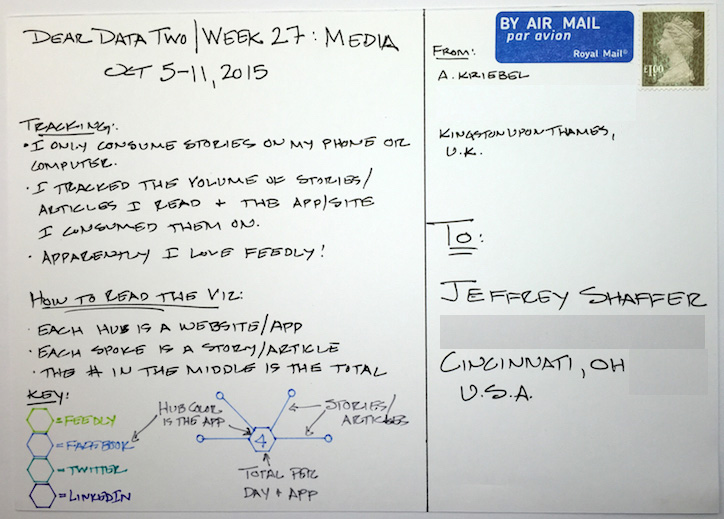 DEAR DATA TWO | WEEK 27: MEDIA
OCT 5-11, 2015
TRACKING:
· I ONLY CONSUME STORIES ON MY PHONE OR
COMPUTER.
· I TRACKED THE VOLUME OF STORIES/
ARTICLES I READ + THE APP/SITE
I CONSUMED THEM ON.
· APPARENTLY I LOVE FEEDLY!
HOW TO READ THE VIZ:
· EACH HUB IS A WEBSITE/APP
· EACH SPOKE IS A STORY/ARTICLE
· THE # IN THE MIDDLE IS THE TOTAL
KEY:
= FEEDLY
= FACEBOOK
= TWITTER
= LINKEDIN
HUB COLOR
IS THE APP
4
STORIES/
ARTICLES
TOTAL PER
DAY + APP
BY AIR MAIL
par avion
Royal Mail®
£1.00
FROM:
A. KRIEBEL
KINGSTON UPON THAMES,
U.K.
TO:
JEFFREY SHAFFER
CINCINNATI, OH
U.S.A.